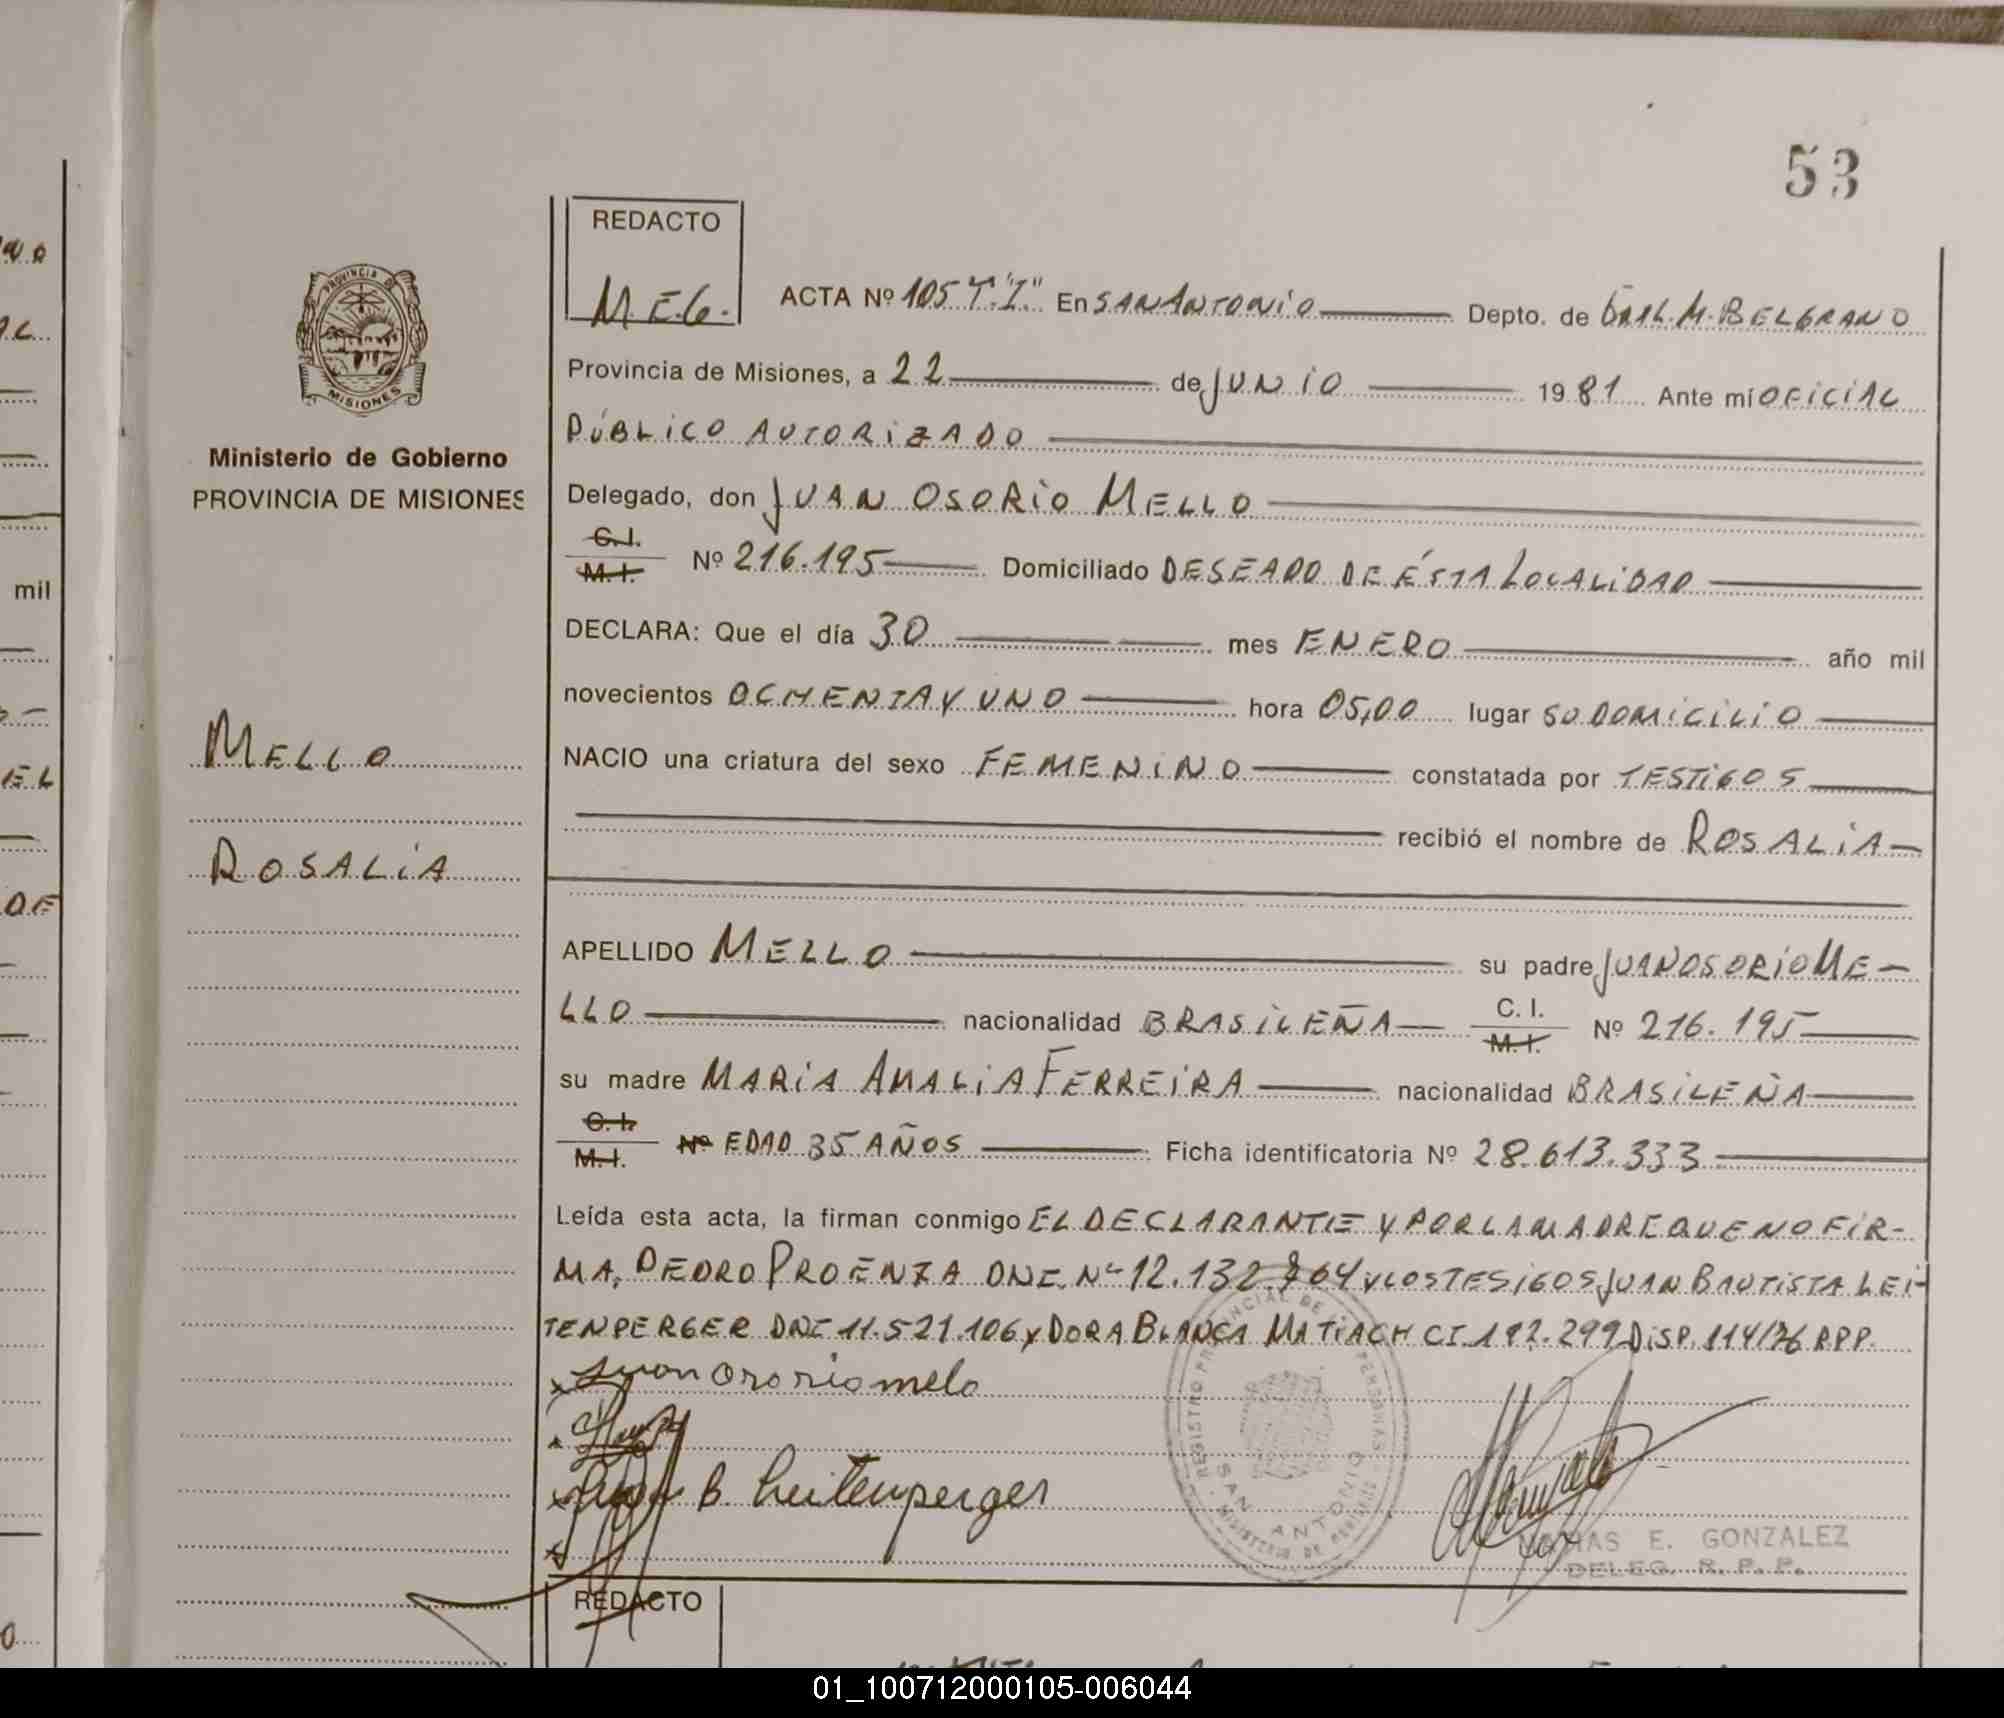 53
REDACTO
M.E.G.
ACTA Nº 105 T."I" En SAN ANTONIO Depto. de GRAL. M. BELGRANO
Provincia de Misiones, a 22 de JUNIO 1981 Ante mí OFICIAL
PÚBLICO AUTORIZADO
Delegado, don JUAN OSORIO MELLO
C.I.
M.I. Nº 216.195 Domiciliado DESEADO DE ÉSTA LOCALIDAD
DECLARA: Que el día 30 mes ENERO año mil
novecientos OCHENTA Y UNO hora 05,00 lugar SU DOMICILIO
NACIO una criatura del sexo FEMENINO constatada por TESTIGOS
recibió el nombre de ROSALIA
APELLIDO MELLO su padre JUAN OSORIO ME-
LLO nacionalidad BRASILEÑA C.I. M.I. Nº 216.195
su madre MARIA AMALIA FERREIRA nacionalidad BRASILEÑA
C.I.
M.I. Nº EDAD 35 AÑOS Ficha identificatoria Nº 28.613.333
Leída esta acta, la firman conmigo EL DECLARANTE Y POR LA MADRE QUE NO FIR-
MA, PEDRO PROENZA DNI. Nº 12.132.964 Y LOS TESIGOS JUAN BAUTISTA LEI-
TENPERGER DNI 11.521.106 Y DORA BLANCA MATIACH CI. 192.299 DISP. 114/76 R.P.P.
x Juan Ororio melo
x B. Leitenperger
x
REGISTRO PROVINCIAL DE LAS PERSONAS
SAN ANTONIO
MATIAS E. GONZALEZ
DELEG. R. P. P.
REDACTO
PROVINCIA DE
MISIONES
Ministerio de Gobierno
PROVINCIA DE MISIONES
MELLO
ROSALIA
mil
01_100712000105-006044